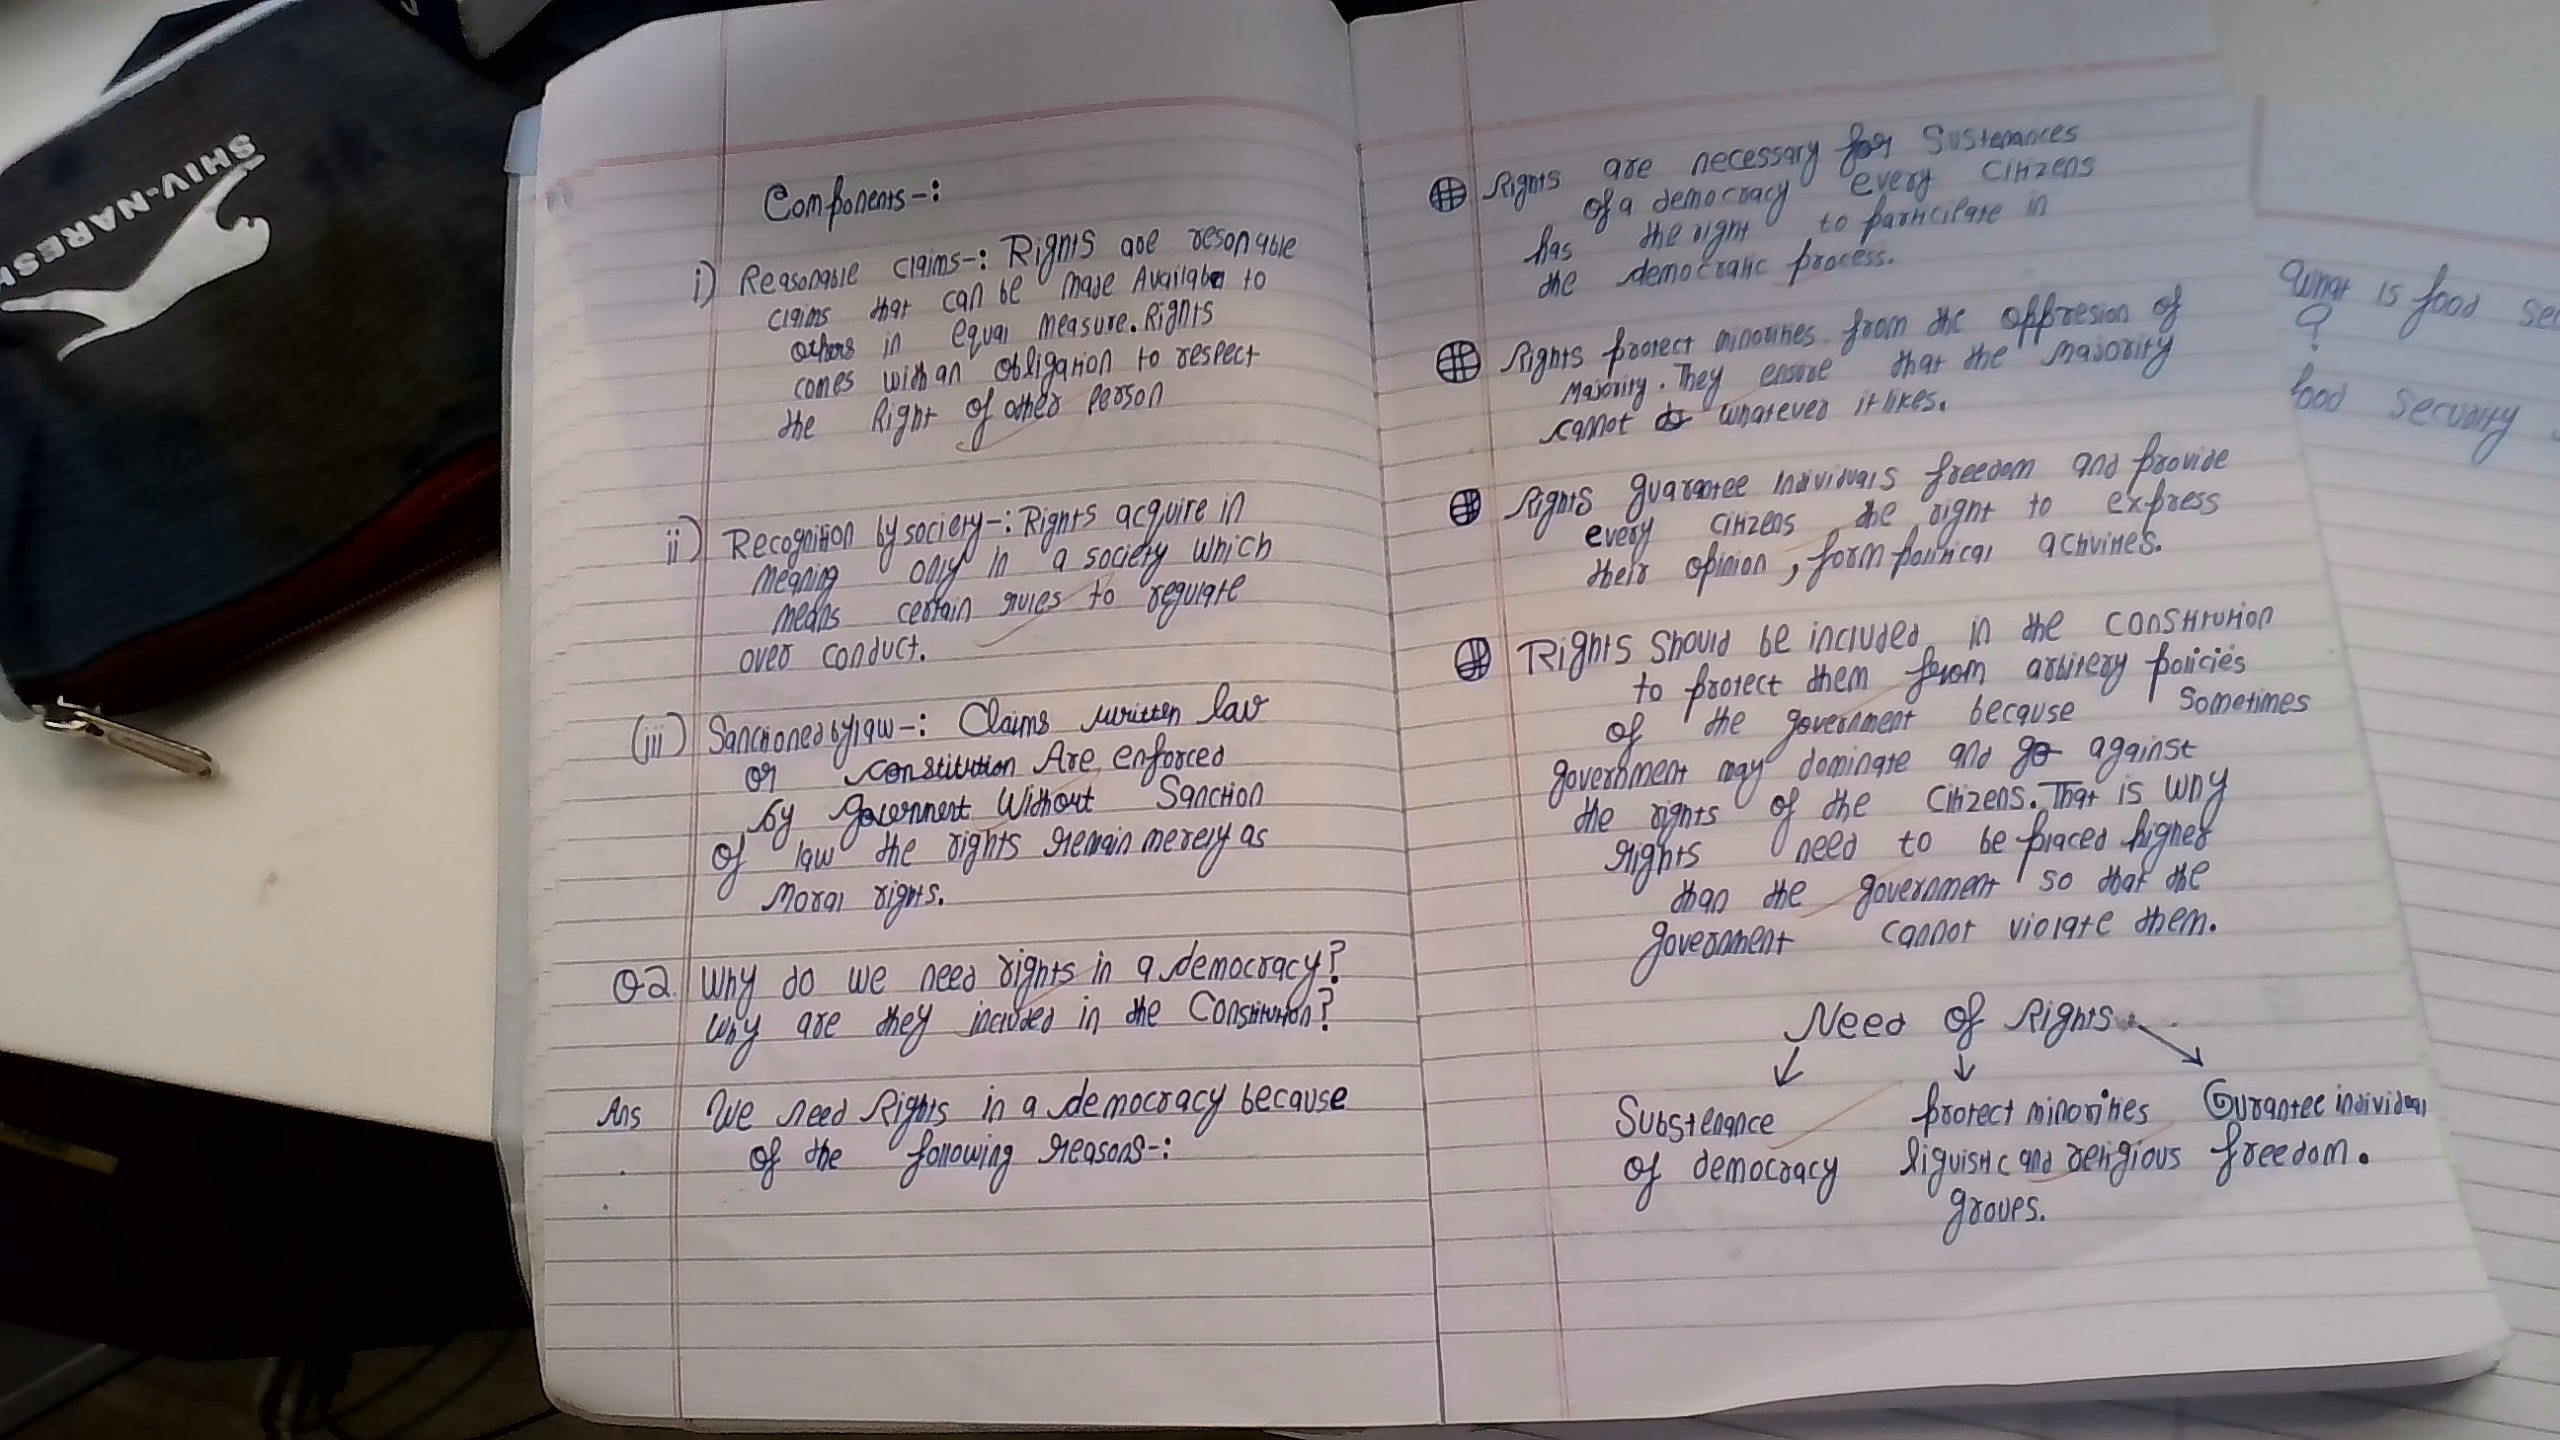 SHIV-NARESH
Components-:
i) Reasonable claims-: Rights are resonable
claims that can be made Available to
others in equal measure. Rights
comes with an obligation to respect
the Right of other person
ii) Recognition by society-: Rights acquire in
meaning only in a society which
means certain rules to regulate
over conduct.
(iii) Sanctioned by law-: Claims written law
or constitution Are enforced
by government Without Sanction
of law the rights remain merely as
Moral rights.
Q2. Why do we need rights in a democracy?
Why are they included in the Constitution?
Ans We need Rights in a democracy because
of the following reasons-:
Rights are necessary for Sustenances
of a democracy every citizens
has the right to participate in
the democratic process.
Rights protect minorities from the oppresion of
Majority. They ensure that the Majority
cannot do whatever it likes.
Rights guarantee Individuals freedom and provide
every citizens the right to express
their opinion, form political activities.
Rights Should be included in the constitution
to protect them from arbitery policies
of the government because Sometimes
government may dominate and go against
the rights of the Citizens. That is why
rights need to be placed higher
than the government so that the
government cannot violate them.
Need of Rights
Substenance protect minorities Gurantee individual
of democracy liguistic and religious freedom.
groups.
What is food
?
food security